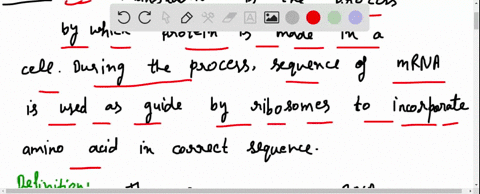 is the process
by which protein is made in a
cell. During the process, sequence of mRNA
is used as guide by ribosomes to incorporate
amino acid in correct sequence.
Definition: